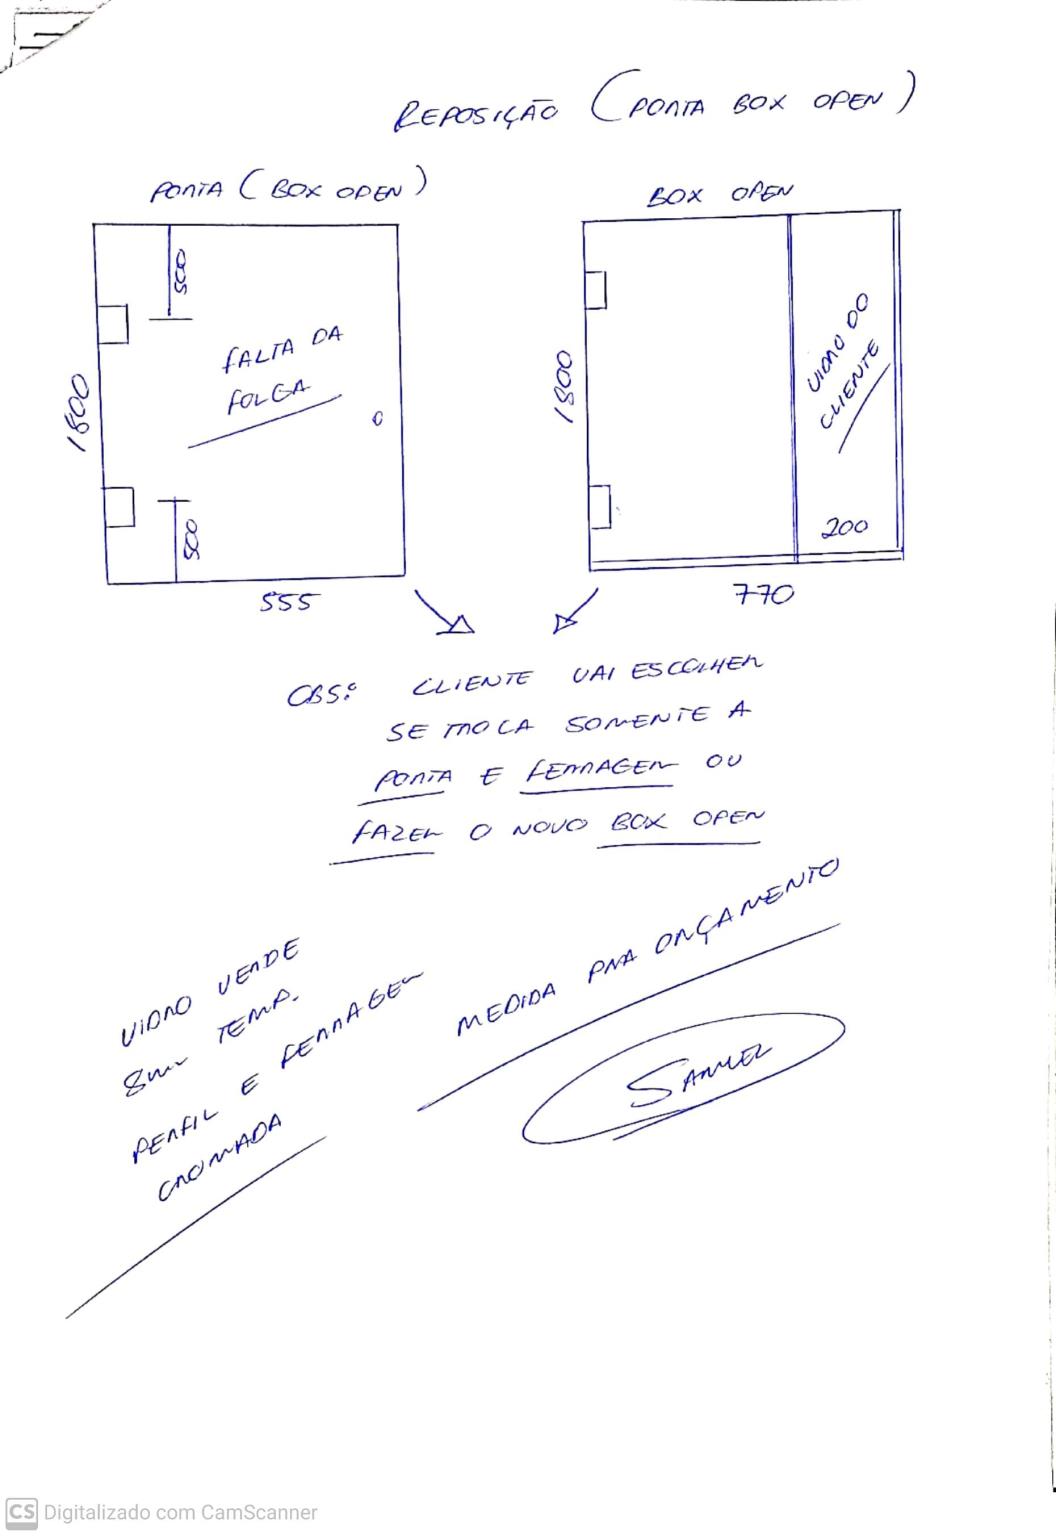 REPOSIÇÃO (PORTA BOX OPEN)
PORTA (BOX OPEN)
BOX OPEN
500
FALTA DA
FOLGA
1800
500
555
1800
VIDRO DO
CLIENTE
200
770
OBS: CLIENTE VAI ESCOLHER
SE TROCA SOMENTE A
PORTA E FERRAGEM OU
FAZER O NOVO BOX OPEN
VIDRO VERDE
8mm TEMP.
PERFIL E FERRAGEM
CROMADA
MEDIDA PRA ORÇAMENTO
SAMUEL
CS Digitalizado com CamScanner